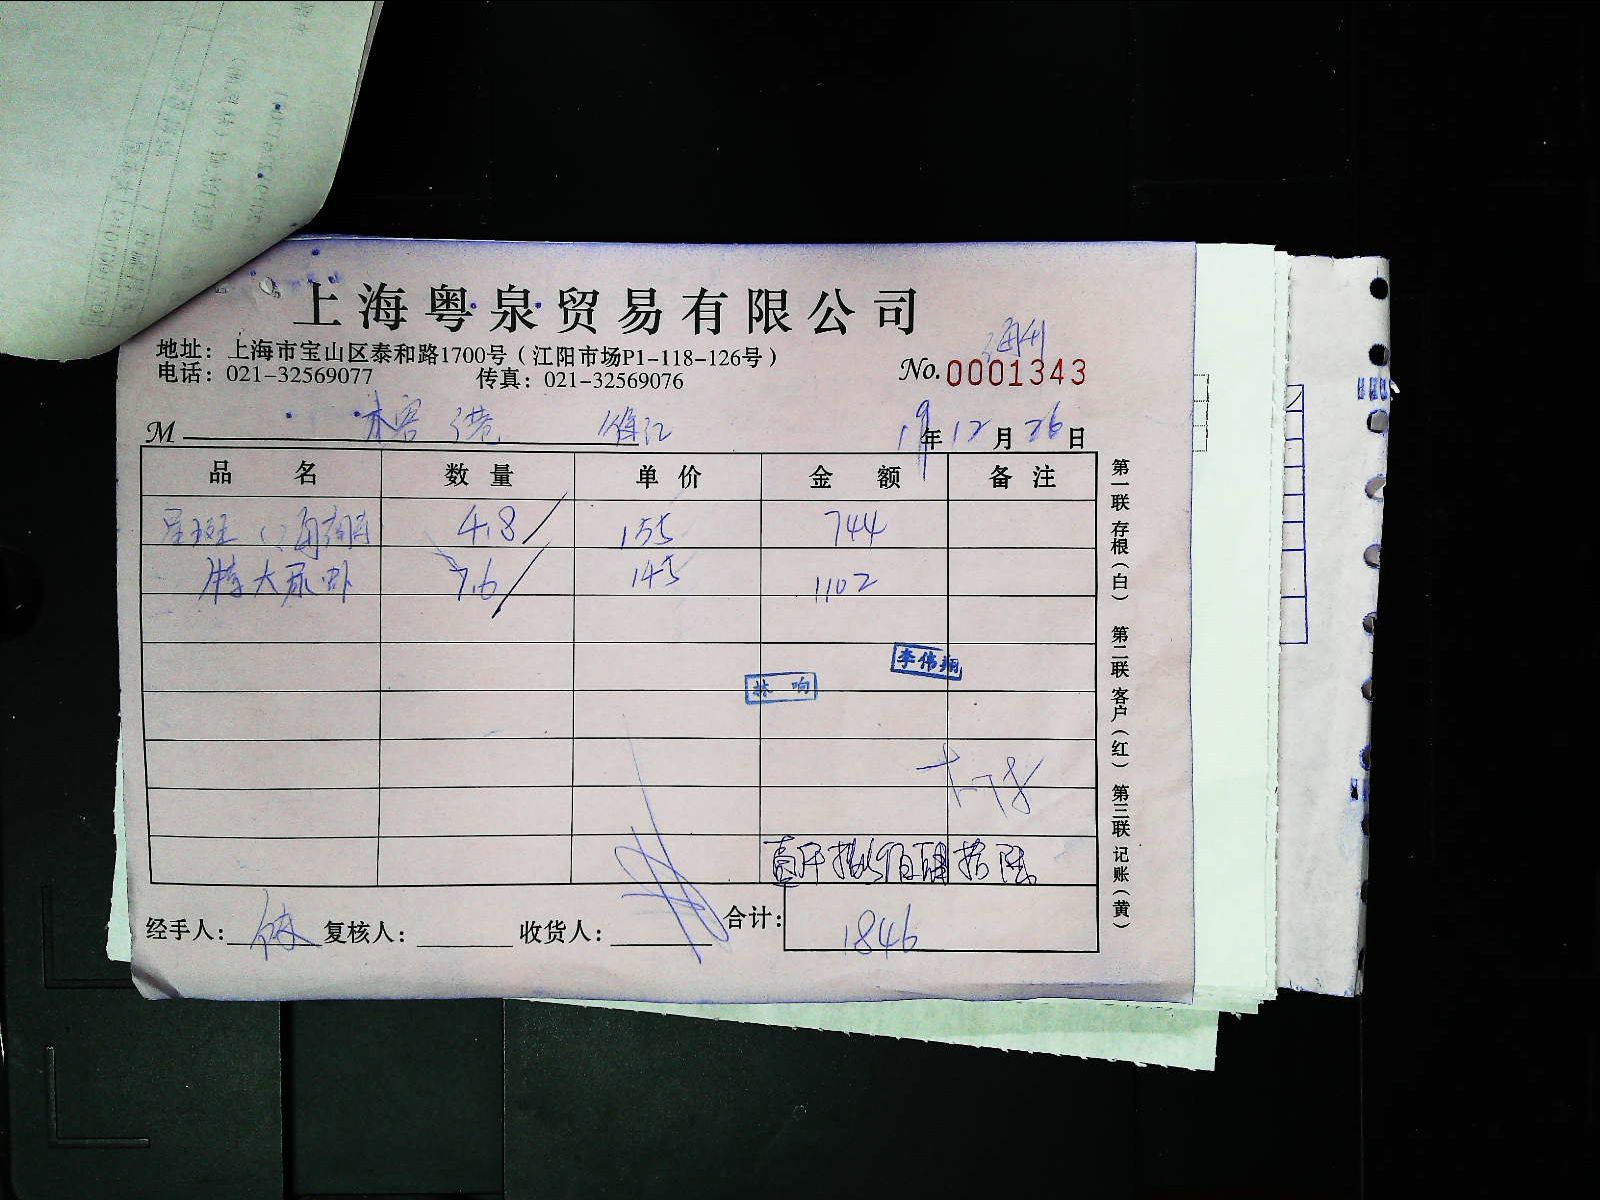 上海粤泉贸易有限公司
地址：上海市宝山区泰和路1700号（江阳市场P1-118-126号）
电话：021-32569077 传真：021-32569076
No.0001343
M 木客 港
19年12月26日
品名 数量 单价 金额 备注
星斑 4.8 155 744
特大尿虾 7.6 145 1102
李伟翔
林响
壹仟捌佰肆拾陆
经手人： 复核人： 收货人： 合计：1846
第一联 存根（白） 第二联 客户（红） 第三联 记账（黄）